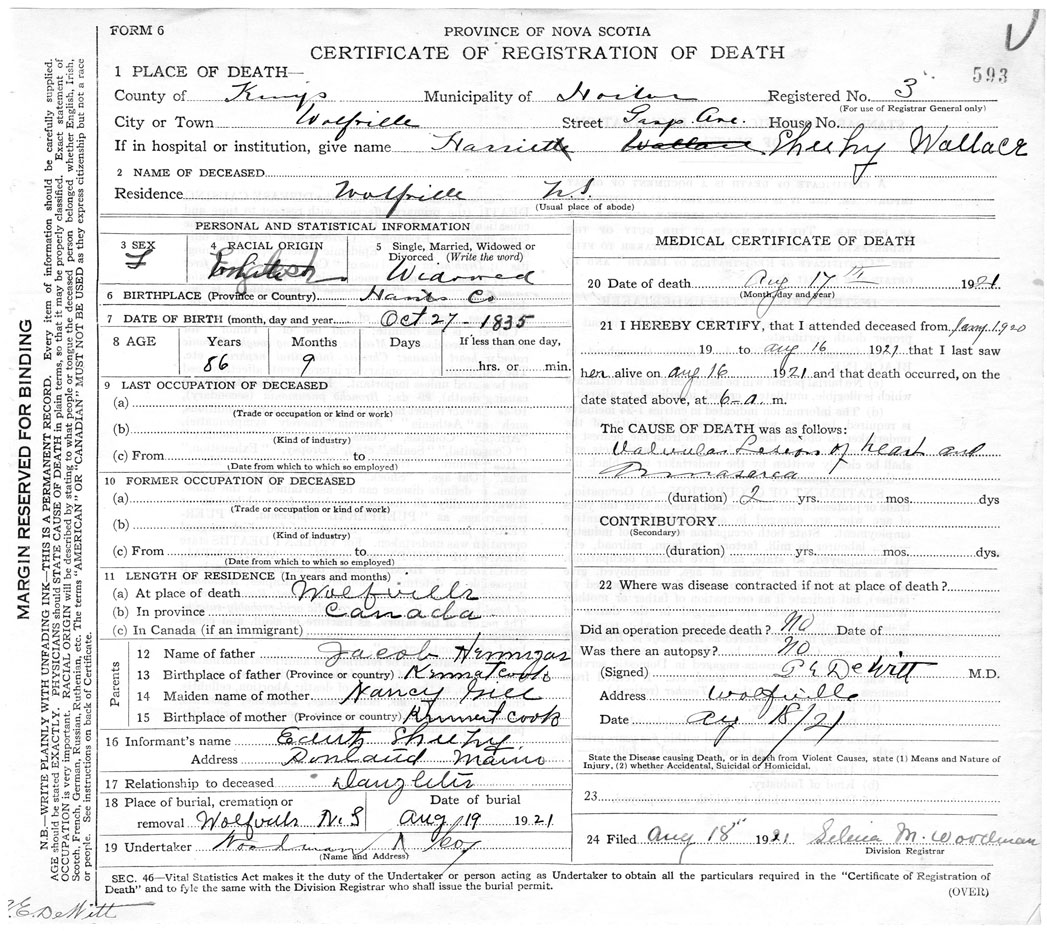 FORM 6
PROVINCE OF NOVA SCOTIA
CERTIFICATE OF REGISTRATION OF DEATH
593
1 PLACE OF DEATH—
County of Kings Municipality of Registered No. 3
(For use of Registrar General only)
City or Town Wolfville Street Gasp. Ave. House No.
If in hospital or institution, give name Harriett Wallace Sheehy Wallace
2 NAME OF DECEASED
Residence Wolfville N.S.
(Usual place of abode)
PERSONAL AND STATISTICAL INFORMATION
3 SEX
F
4 RACIAL ORIGIN
English
5 Single, Married, Widowed or Divorced (Write the word)
Widowed
6 BIRTHPLACE (Province or Country) Hants Co
7 DATE OF BIRTH (month, day and year Oct 27 - 1835
8 AGE Years Months Days If less than one day,
86 9 hrs. or min.
9 LAST OCCUPATION OF DECEASED
(a)
(Trade or occupation or kind or work)
(b)
(Kind of industry)
(c) From to
(Date from which to which so employed)
10 FORMER OCCUPATION OF DECEASED
(a)
(Trade or occupation or kind or work)
(b)
(Kind of industry)
(c) From to
(Date from which to which so employed)
11 LENGTH OF RESIDENCE (In years and months)
(a) At place of death Wolfville
(b) In province Canada
(c) In Canada (if an immigrant)
Parents
12 Name of father Jacob Hennigar
13 Birthplace of father (Province or country)
14 Maiden name of mother Nancy Gill
15 Birthplace of mother (Province or country)
16 Informant's name Edith Sheehy
Address Maine
17 Relationship to deceased Daughter
18 Place of burial, cremation or Date of burial
removal Wolfville N.S Aug 19 1921
19 Undertaker Woodman & Coy
(Name and Address)
MEDICAL CERTIFICATE OF DEATH
20 Date of death Aug 17th 1921
(Month, day and year)
21 I HEREBY CERTIFY, that I attended deceased from Jany. 1920
19 to Aug 16 1921 that I last saw
her alive on Aug 16 1921 and that death occurred, on the
date stated above, at 6-a m.
The CAUSE OF DEATH was as follows:
Valvular Lesion of heart and
Anasarca
(duration) 2 yrs. mos. dys
CONTRIBUTORY
(Secondary)
(duration) yrs. mos. dys.
22 Where was disease contracted if not at place of death?
Did an operation precede death? No Date of
Was there an autopsy? No
(Signed) G E DeWitt M.D.
Address Wolfville
Date Ag 18/21
State the Disease causing Death, or in death from Violent Causes, state (1) Means and Nature of
Injury, (2) whether Accidental, Suicidal or Homicidal.
23
24 Filed Aug 18th 1921 Selina M. Woodman
Division Registrar
SEC. 46—Vital Statistics Act makes it the duty of the Undertaker or person acting as Undertaker to obtain all the particulars required in the "Certificate of Registration of
Death" and to fyle the same with the Division Registrar who shall issue the burial permit.
(OVER)
MARGIN RESERVED FOR BINDING
N.B.—WRITE PLAINLY WITH UNFADING INK—THIS IS A PERMANENT RECORD. Every item of information should be carefully supplied.
AGE should be stated EXACTLY. PHYSICIANS should STATE CAUSE OF DEATH in plain terms, so that it may be properly classified. Exact statement of
OCCUPATION is very important. RACIAL ORIGIN will be described by stating to what people or tongue the deceased person belonged whether English, Irish,
Scotch, French, German, Russian, Ruthenian, etc. The terms "AMERICAN" OR "CANADIAN" MUST NOT BE USED as they express citizenship but not a race
or people. See instructions on back of Certificate.
E. DeWitt